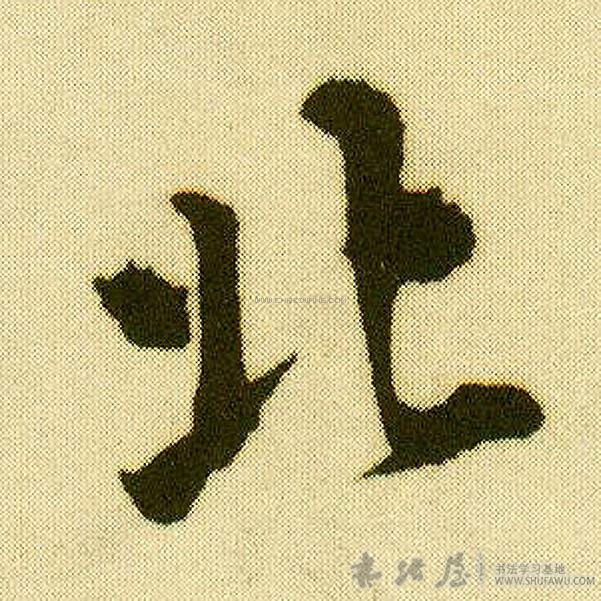 北
书法学习基地
WWW.SHUFAWU.COM